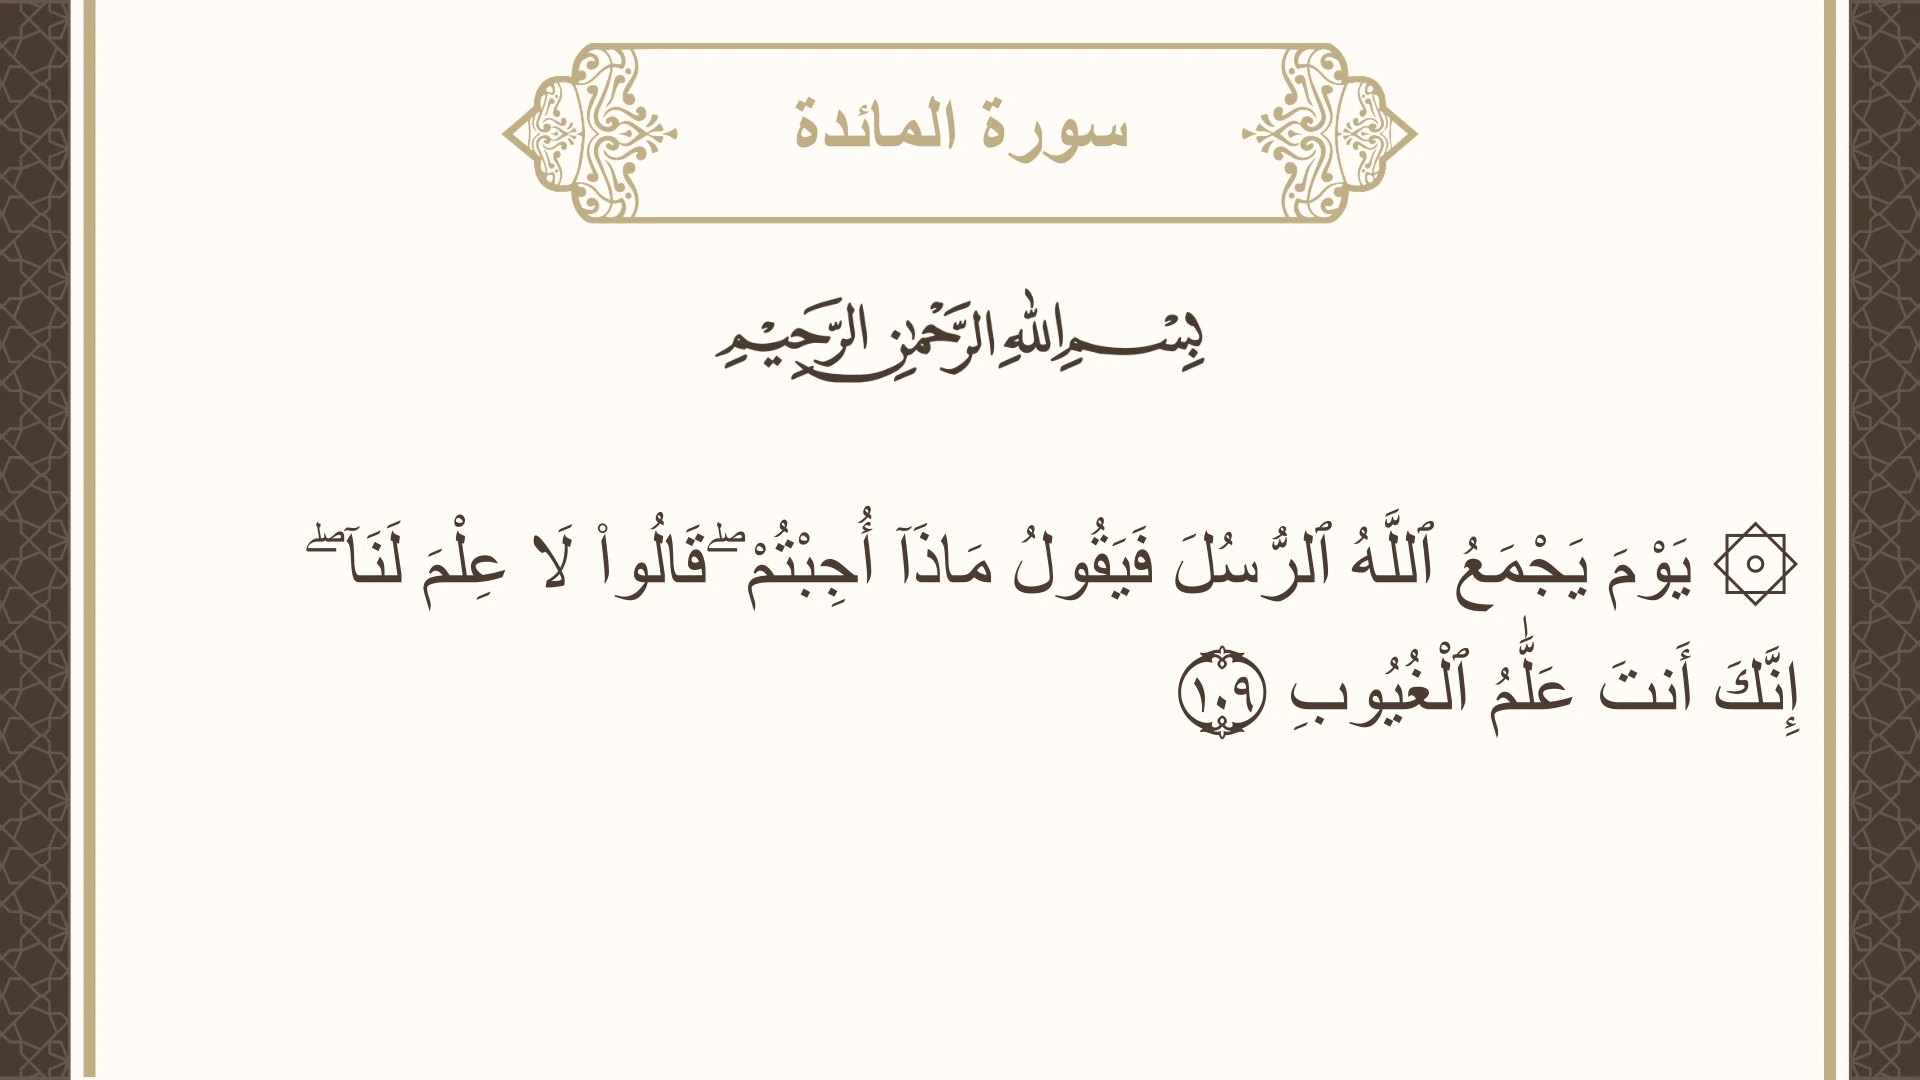 سورة المائدة
بِسْمِ اللهِ الرَّحْمٰنِ الرَّحِيْمِ
۞ يَوْمَ يَجْمَعُ ٱللَّهُ ٱلرُّسُلَ فَيَقُولُ مَاذَآ أُجِبْتُمْ ۖ قَالُوا۟ لَا عِلْمَ لَنَآ ۖ
إِنَّكَ أَنتَ عَلَّٰمُ ٱلْغُيُوبِ ١٠٩